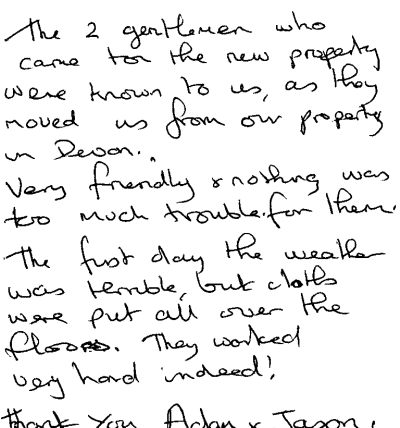 The 2 gentlemen who
came to the new property
were known to us, as they
moved us from our property
in Devon..
Very friendly & nothing was
too much trouble. for them.
The first day the weather
was terrible, but cloths
were put all over the
floors. They worked
very hard indeed!
Thank You Adan & Jason.